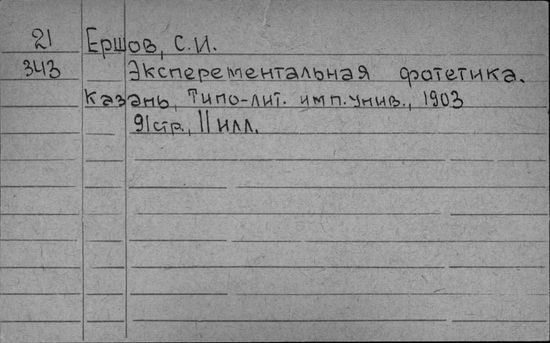 21 Ершов, С.И.
343 Эксперементальная фотетика.
Казань, Типо-лит. имп.унив., 1903
91стр., 11 илл.